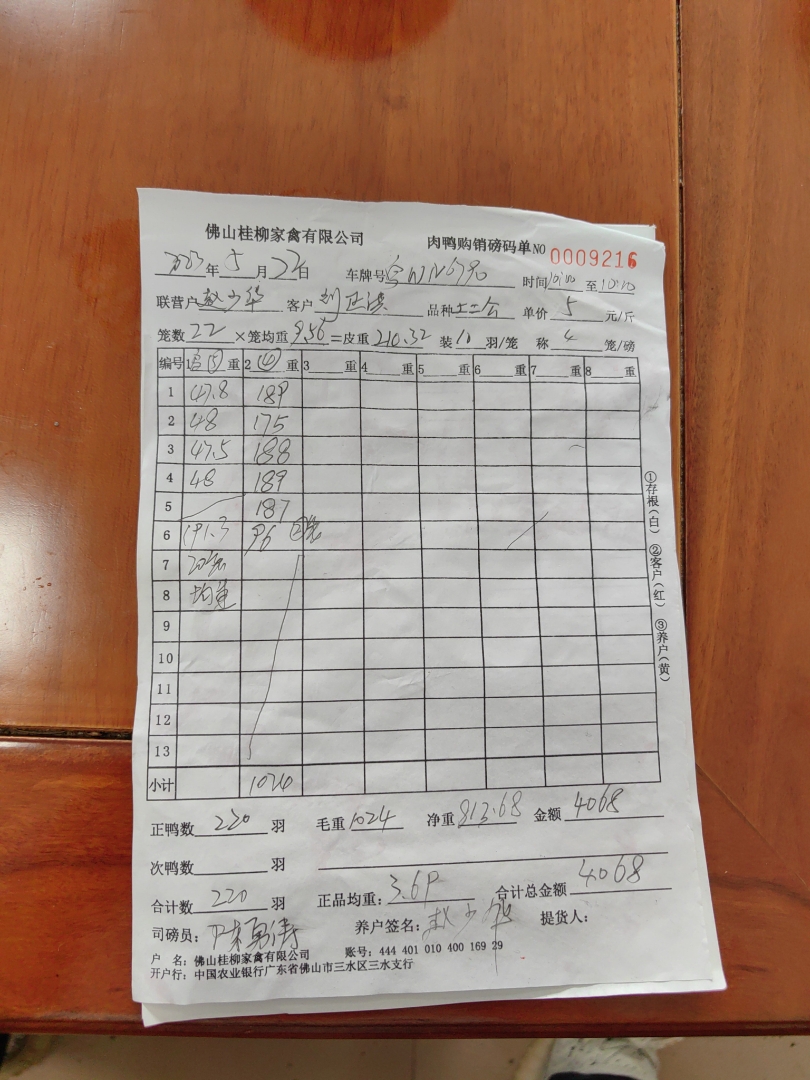 佛山桂柳家禽有限公司 肉鸭购销磅码单 NO 0009216
2023年5月22日 车牌号 时间10:00至10:10
联营户赵少华 客户 品种土二公 单价5元/斤
笼数22×笼均重9.56=皮重210.32 装10羽/笼 称4笼/磅
编号 1空⑤重 2④重 3重 4重 5重 6重 7重 8重
1 47.8 189
2 48 175
3 47.5 188
4 48 189
5 187
6 191.3 96 ②笼
7
8 均重
9
10
11
12
13
小计 1024
正鸭数220羽 毛重1024 净重813.68 金额4068
次鸭数羽
合计数220羽 正品均重:3.69 合计总金额4068
司磅员: 养户签名:赵少华 提货人:
户 名:佛山桂柳家禽有限公司 账号:444 401 010 400 169 29
开户行:中国农业银行广东省佛山市三水区三水支行
①存根(白) ②客户(红) ③养户(黄)